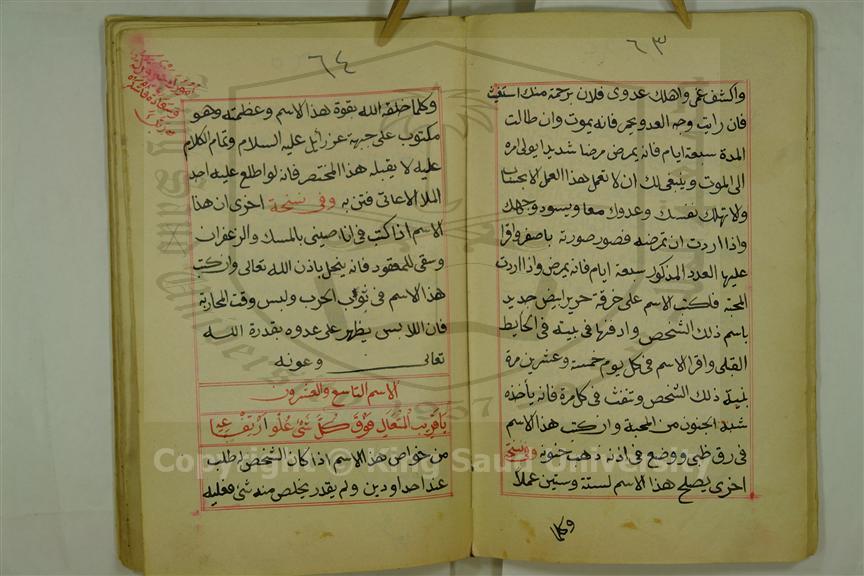 ٦٣
واكشف عمى واهلك عدوى فلان برحمة منك استغيث
فان رايت وجه العدو يحمر فانه يموت وان طالت
المدة سبعة ايام فانه يمرض مرضا شديدا يولى امره
الى الموت وينبغى لك ان لا تعمل هذا العمل الا
ولا تهلك نفسك وعدوك معا ويسود وجهك
واذا اردت ان تمرضه فصور صورة باصفر واقرا
عليها العدد المذكور سبعة ايام فانه يمرض واذا اردت
المحبة فلكتب الاسم على خرقة حرير ابيض جديد
باسم ذلك الشخص وادفنها فى بيته فى الحايط
القبلى واقرا الاسم فى كل يوم خمسة وعشرين مرة
بنية ذلك الشخص وتنفث فى كل مرة فانه يأخذه
شبه الجنون من المحبة وان كتب هذا الاسم
فى رق ظبى ووضع فى اذن ذهب جنونه وفى نسخة
اخرى يصلح هذا الاسم لستة وستين عملا
وكلما
٦٤
وكلما خلقه الله بقوة هذا الاسم وعظمته وهو
مكتوب على جبهة عزرائيل عليه السلام وتمام الكلام
عليه لا يقبله هذا المختصر فانه لو اطلع عليه احد
الملا الاعلى فتن به وفى نسخة اخرى ان هذا
الاسم اذا كتب فى انا صينى بالمسك والزعفران
وسقى للمعقود فانه ينحل باذن الله تعالى وان كتب
هذا الاسم فى ثوب الحرب ولبس وقت المحاربة
فان اللابس يظهر على عدوه بقدرة الله
تعالى وعونه
الاسم التاسع والعشرون
يا قريب المتعالى فوق كل شئ علو ارتفاعه
من خواص هذا الاسم اذا كان الشخص طلب
عند احد او دين ولم يقدر يخلص منه شئ فعليه
Copyright © King Saud University
1957